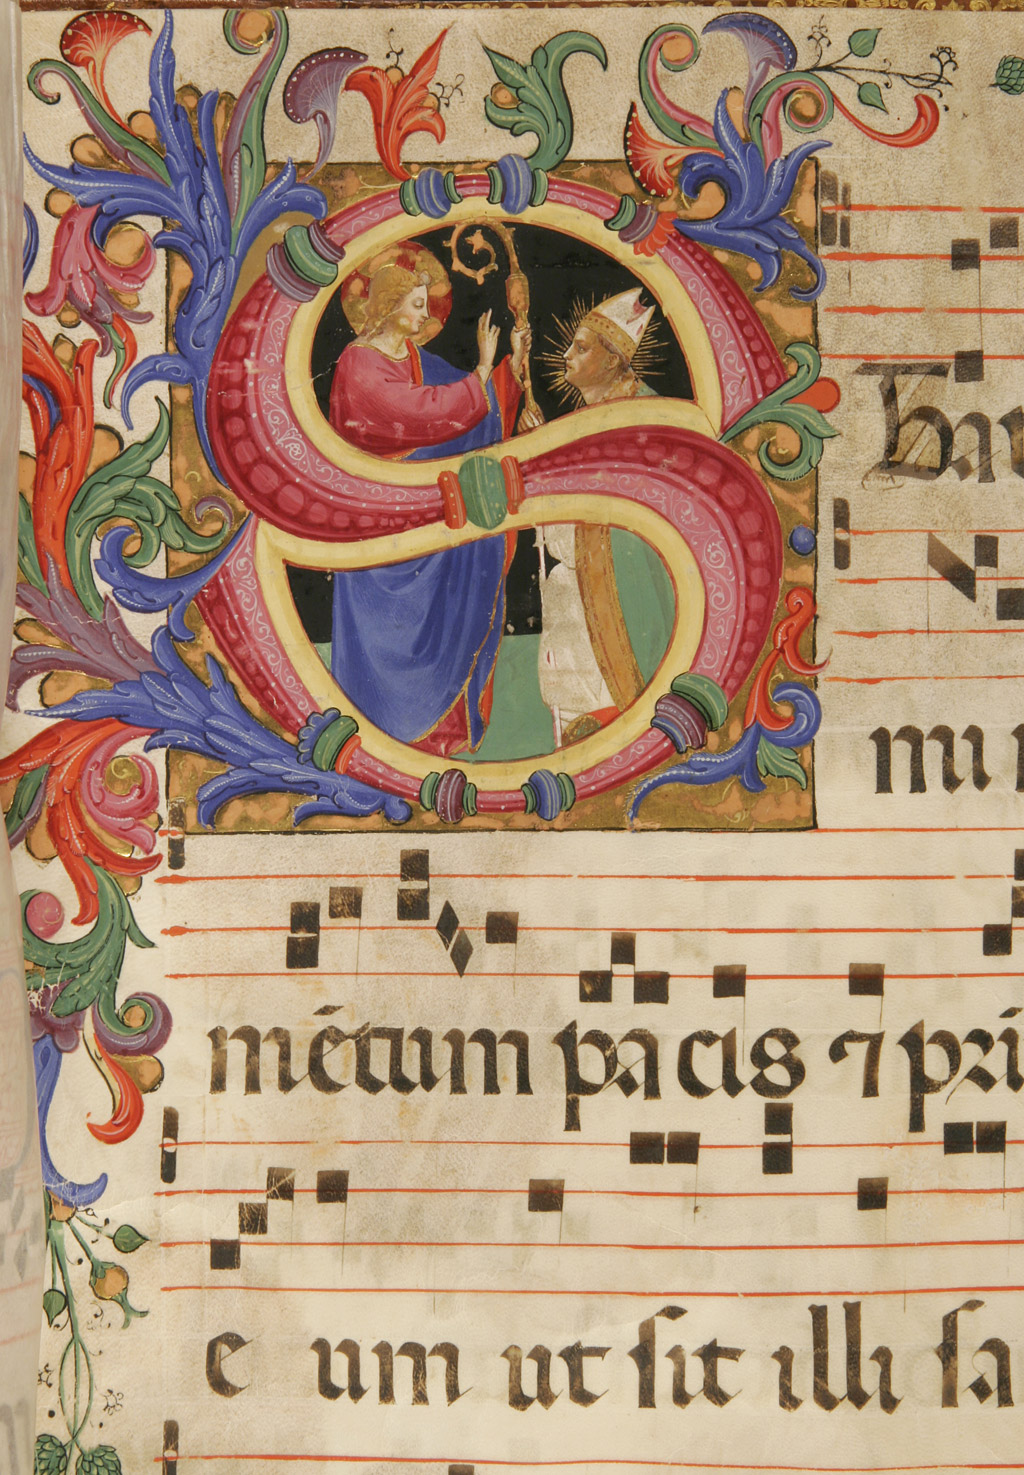 STat
mi
mētum pacis ⁊ pri
e um ut sit illi sa